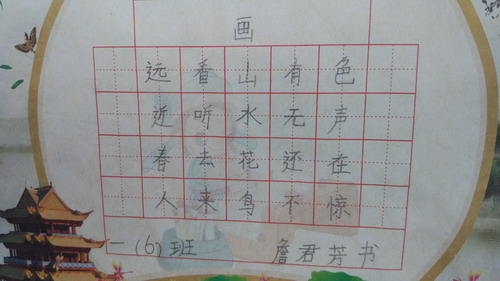 画
远看山有色
近听水无声
春去花还在
人来鸟不惊
一(6)班 詹君芳书